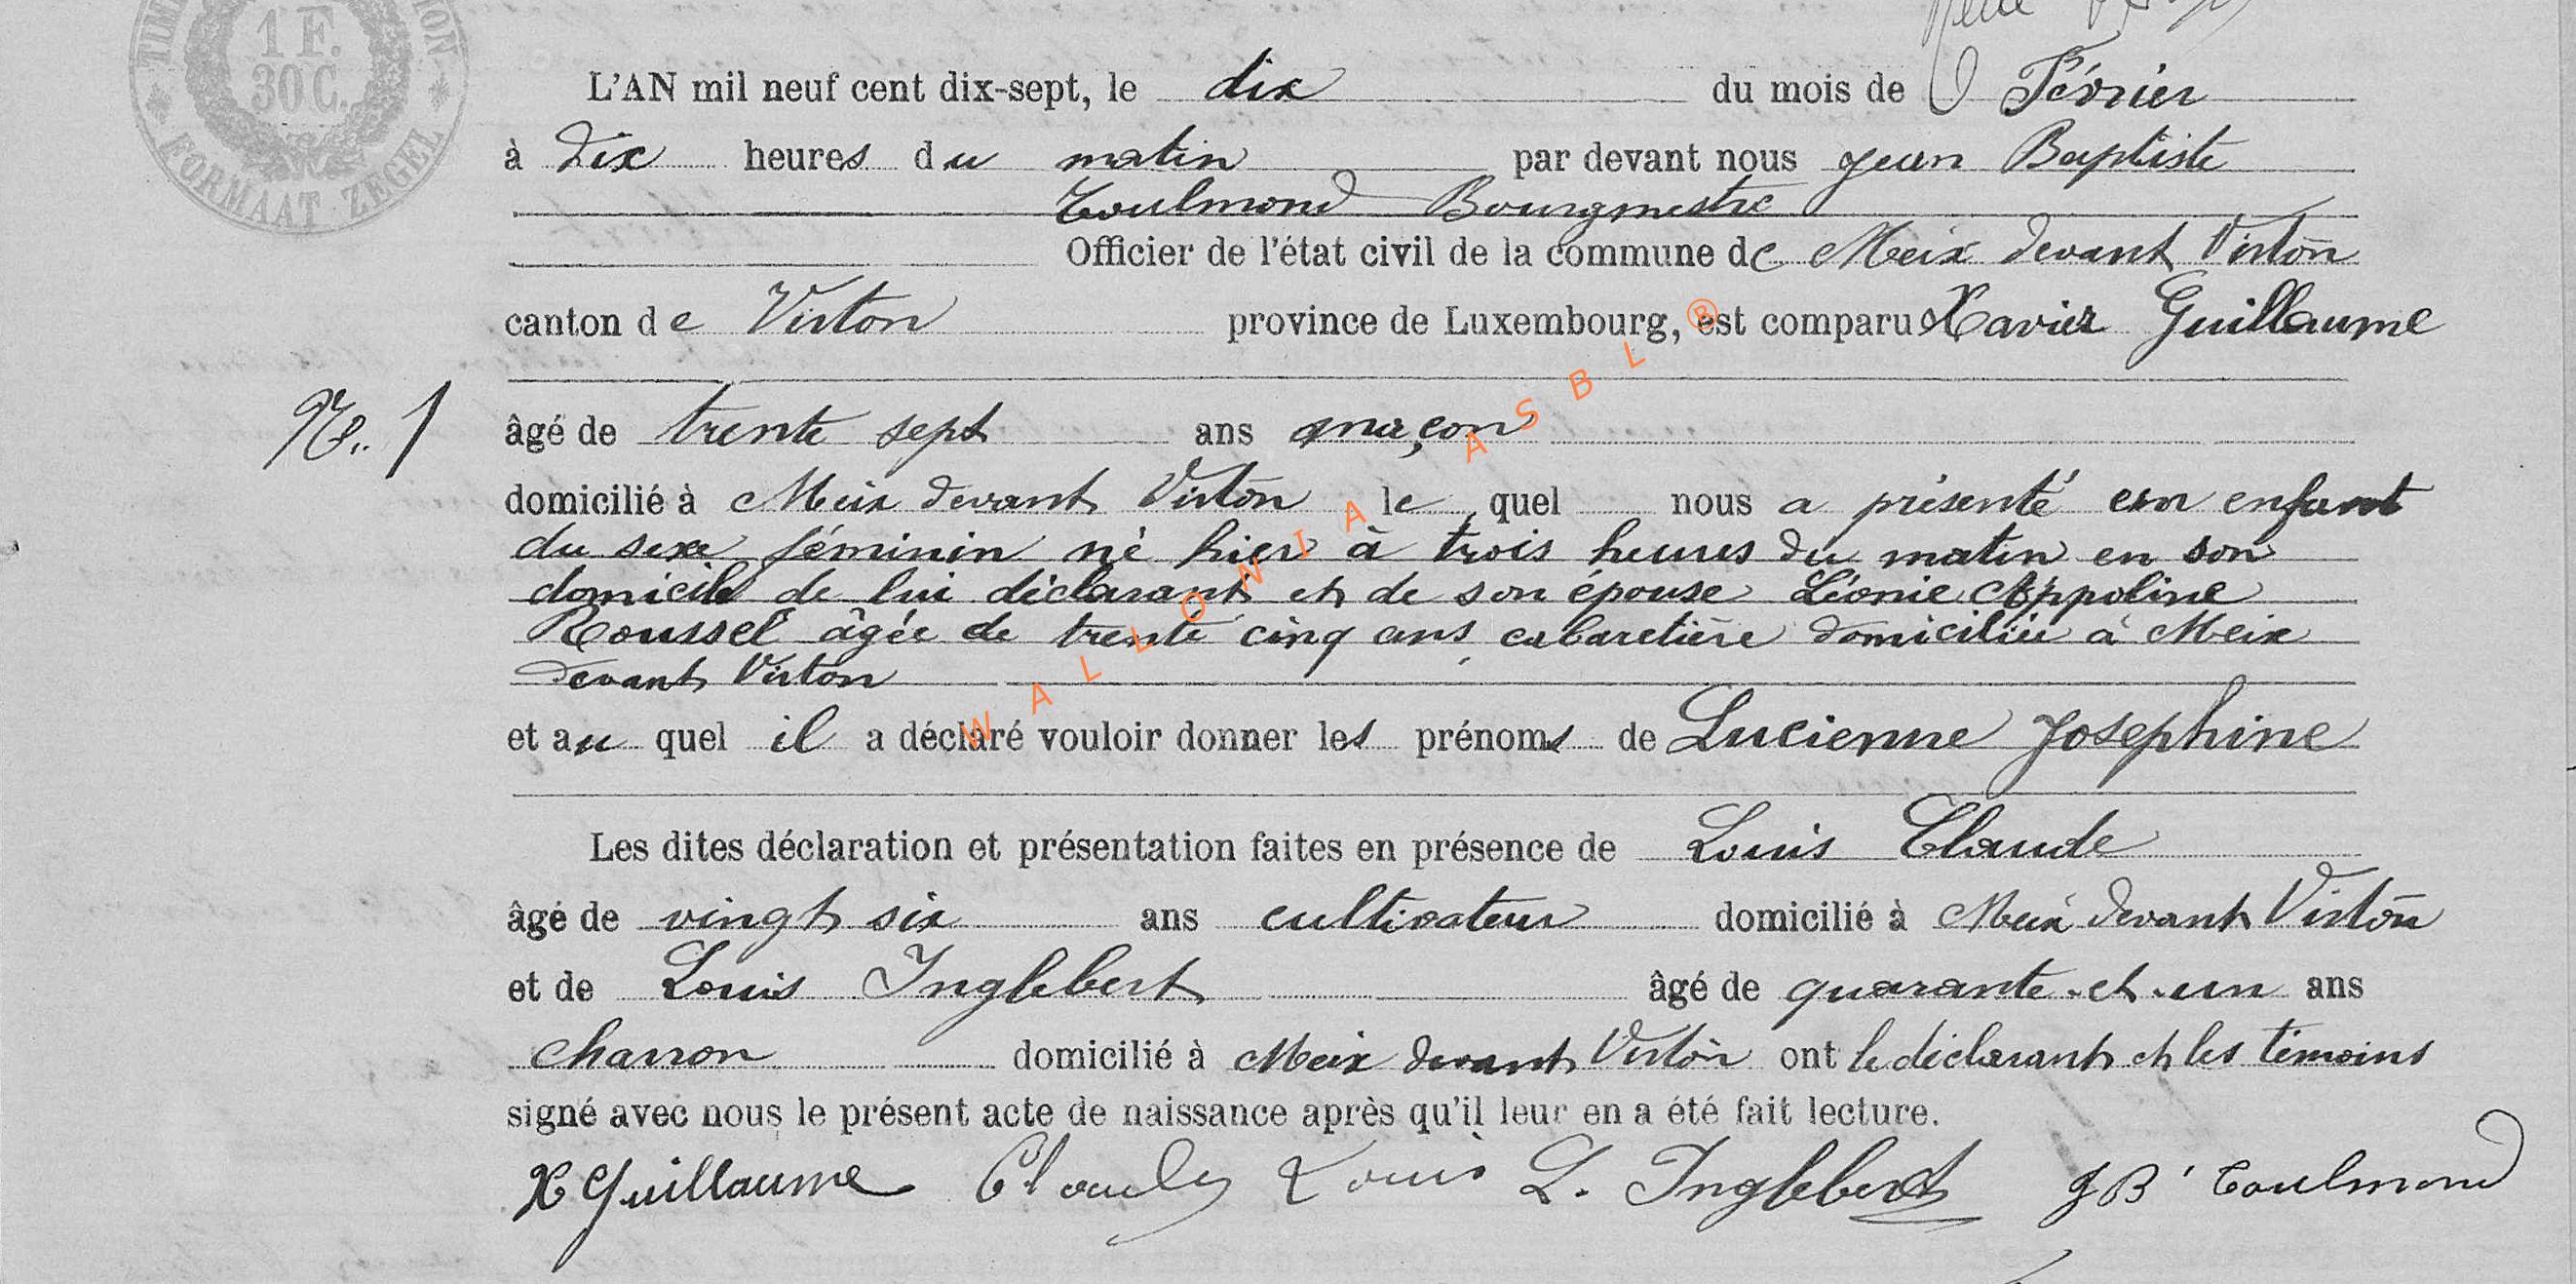 1 F.
30 C.
FORMAAT ZEGEL
L'AN mil neuf cent dix-sept, le dix du mois de Février
à Dix heures du matin par devant nous Jean Baptiste
Toulmond Bourgmestre
Officier de l'état civil de la commune de Meix devant Virton
canton de Virton province de Luxembourg, est comparu Xavier Guillaume
No. 1
âgé de trente sept ans maçon
domicilié à Meix devant Virton le quel nous a présenté un enfant
du sexe féminin né hier à trois heures du matin en son
domicile de lui déclarant et de son épouse Léonie Appoline
Roussel âgée de trente cinq ans, cabaretière domiciliée à Meix
devant Virton
et au quel il a déclaré vouloir donner les prénoms de Lucienne Josephine
Les dites déclaration et présentation faites en présence de Louis Claude
âgé de vingt six ans cultivateur domicilié à Meix devant Virton
et de Louis Inglebert âgé de quarante-et-un ans
charron domicilié à Meix devant Virton ont le déclarant et les témoins
signé avec nous le présent acte de naissance après qu'il leur en a été fait lecture.
X Guillaume Claude Louis L. Inglebert JB Toulmond
WALLONIA ASBL ®